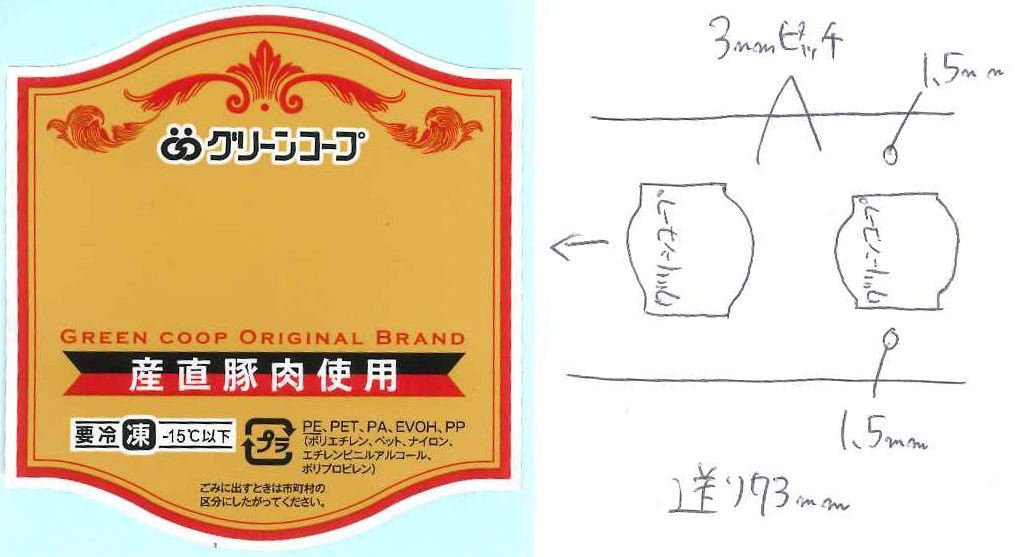 グリーンコープ
GREEN COOP ORIGINAL BRAND
産直豚肉使用
要冷凍 -15℃以下
プラ
PE、PET、PA、EVOH、PP
(ポリエチレン、ペット、ナイロン、
エチレンビニルアルコール、
ポリプロピレン)
ごみに出すときは市町村の
区分にしたがってください。
3mmピッチ
1.5mm
グリーンコープ
グリーンコープ
1.5mm
送り73mm